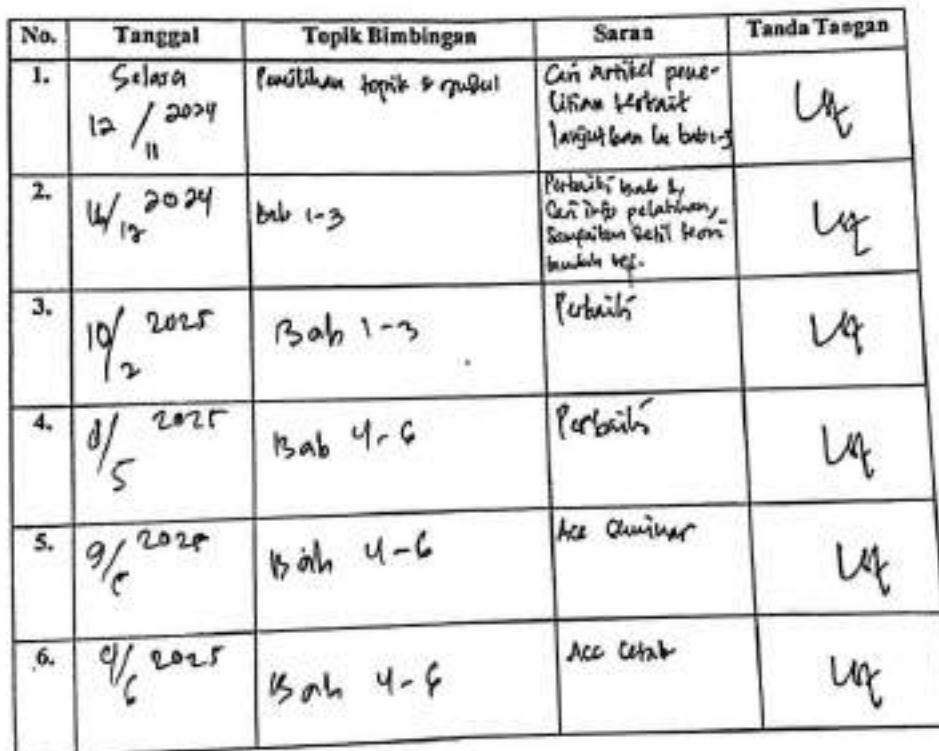 No. Tanggal Topik Bimbingan Saran Tanda Tangan
1. Selasa 12/11 2024 Pemilihan topik & judul Cari artikel pene-
litian terkait
lanjutkan ke bab 1-3
2. 2024 bab 1-3 Perbaiki bab
Cari info pelatihan,
Sampaikan detil teori
3. 10/2 2025 Bab 1-3 Perbaiki
4. 8/5 2025 Bab 4-6 Perbaiki
5. 9/ 2025 Bab 4-6 Acc Seminar
6. /6 2025 Bab 4-6 Acc Cetak